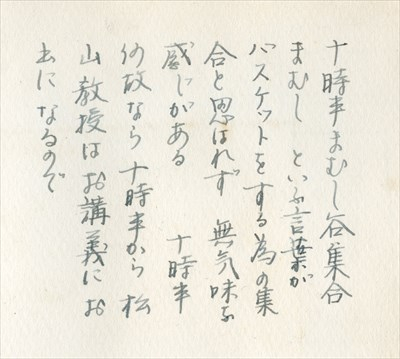 十時半まむし谷集合
まむし といふ言葉が
バスケットをする為の集
合と思はれず 無気味な
感じがある 十時半
何故なら 十時半から 松
山教授は お講義に お
出に なるので